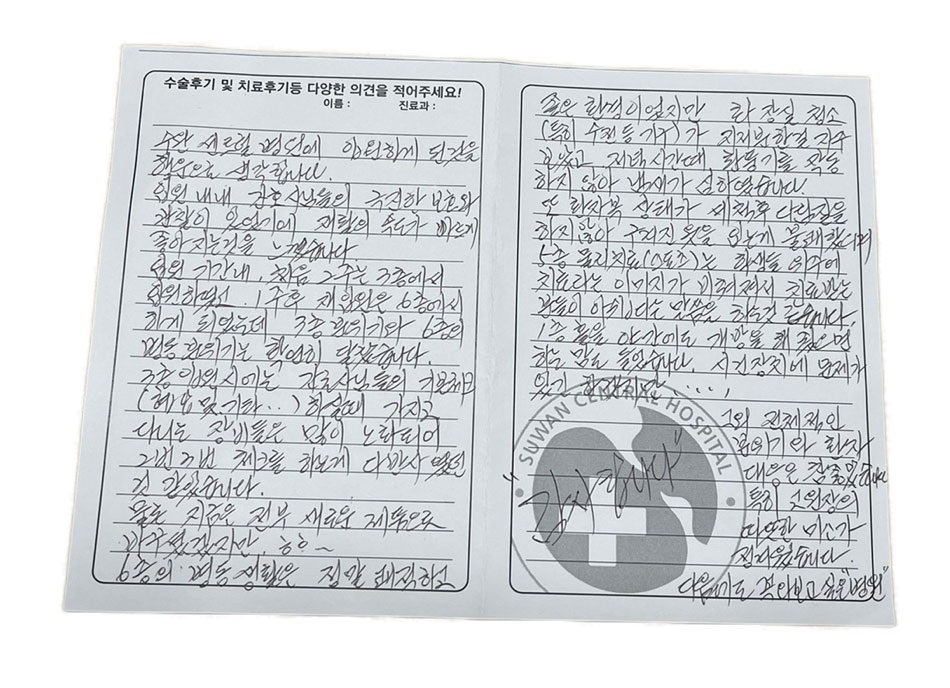 수술후기 및 치료후기등 다양한 의견을 적어주세요!
이름 : 진료과 :
수완 센트럴 병원에 입원하게 된것을
행운으로 생각합니다.
입원 내내 간호사님들의 극진한 보호와
관찰이 있었기에 재활의 속도가 빠르게
좋아지는것을 느꼈습니다.
입원 기간내, 처음 2주는 3층에서
입원하였고, 1주후 재입원은 6층에서
하게 되었는데 3층 분위기와 6층의
병동 분위기는 확연히 달랐습니다.
3층 입원시에는 간호사님들의 기본체크
(혈압 및 기타...) 하실때 가지고
다니는 장비들은 많이 노화되어
2번 3번 체크를 하는게 다반사였던
것 같았습니다.
물론 지금은 전부 새로운 제품으로
바꾸셨겠지만. ㅎㅎ~
6층의 병동 생활은 정말 쾌적하고
좋은 환경이었지만 화장실 청소
(특히 수전등 기구)가 지저분한걸 자주
보았고 저녁시간때 환풍기를 작동
하지 않아 냄새가 심하였습니다.
또 환자복 상태가 세척후 다림질을
하지 않아 구겨진 옷을 입는게 불쾌했으며
5층 물리치료(스포츠)는 학생들 위주에
치료라는 이미지가 비춰져서 치료받는
분들이 아쉽다는 말씀을 하는걸 들었습니다.
1층 홀을 야간에도 개방을 해 줬으면
하는 맘도 들었습니다. 시건장치에 문제가
있긴 하겠지만 .....,
그외 전체적인
분위기와 환자
대응은 참 좋았습니다
특히 고원장의
따뜻한 미소가
정다웠습니다.
다음에도 꼭 와보고 싶은 "병원"
"감사합니다"
SUWAN CENTRAL HOSPITAL